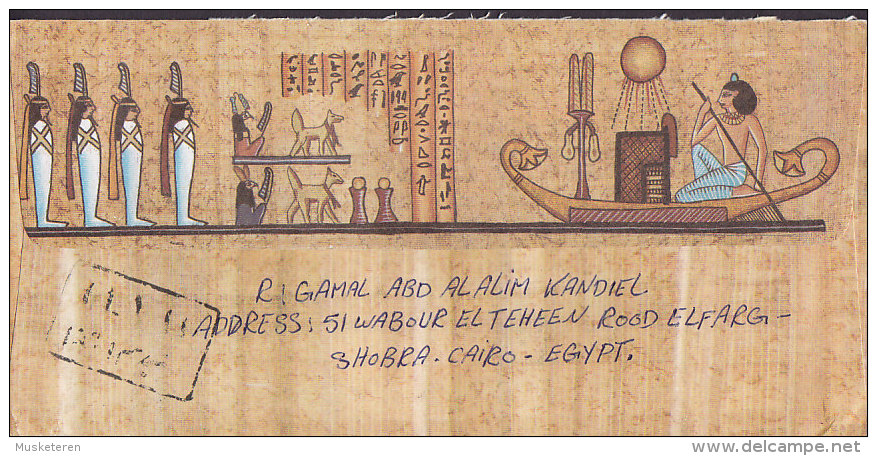 R! GAMAL ABD ALALIM KANDIEL
ADDRESS: 51 WABOUR EL TEHEEN ROOD ELFARG -
SHOBRA - CAIRO - EGYPT.
Musketeren
delcampe.net